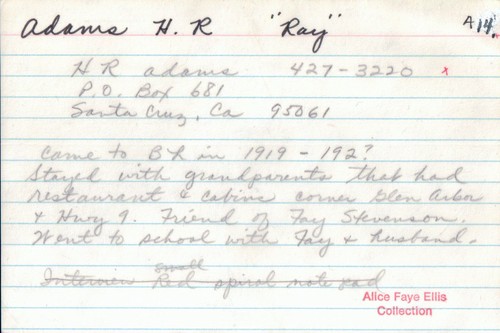 Adams H. R "Ray" A14.
H R adams 427-3220 x
P.O. Box 681
Santa Cruz, Ca 95061
Came to B L in 1919 - 192?
Stayed with grandparents that had
restaurant & cabins corner Glen Arbor
& Hwy 9. Friend of Fay Stevenson.
Went to school with Fay & husband.
small
Interview Red spiral note pad
Alice Faye Ellis
Collection